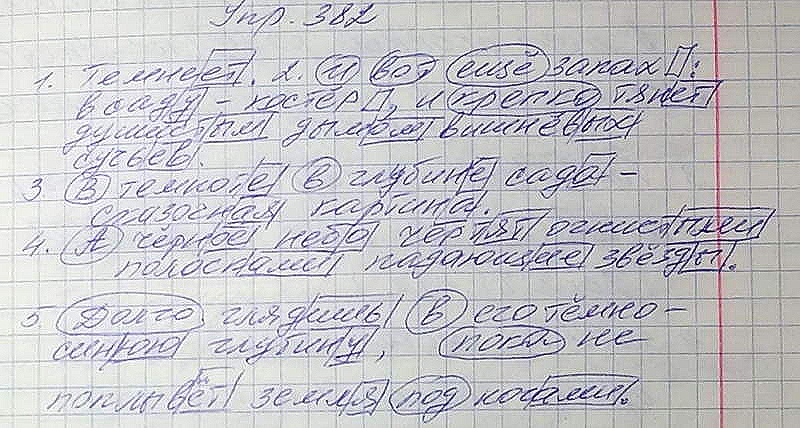 Упр. 382
1. Темнеет. 2. И вот ещё запах:
в саду – костёр, и крепко тянет
душистым дымом вишнёвых
сучьев.
3. В темноте в глубине сада –
сказочная картина.
4. А чёрное небо чертят огнистыми
полосками падающие звёзды.
5. Долго глядишь в его тёмно-
синюю глубину, пока не
поплывёт земля под ногами.